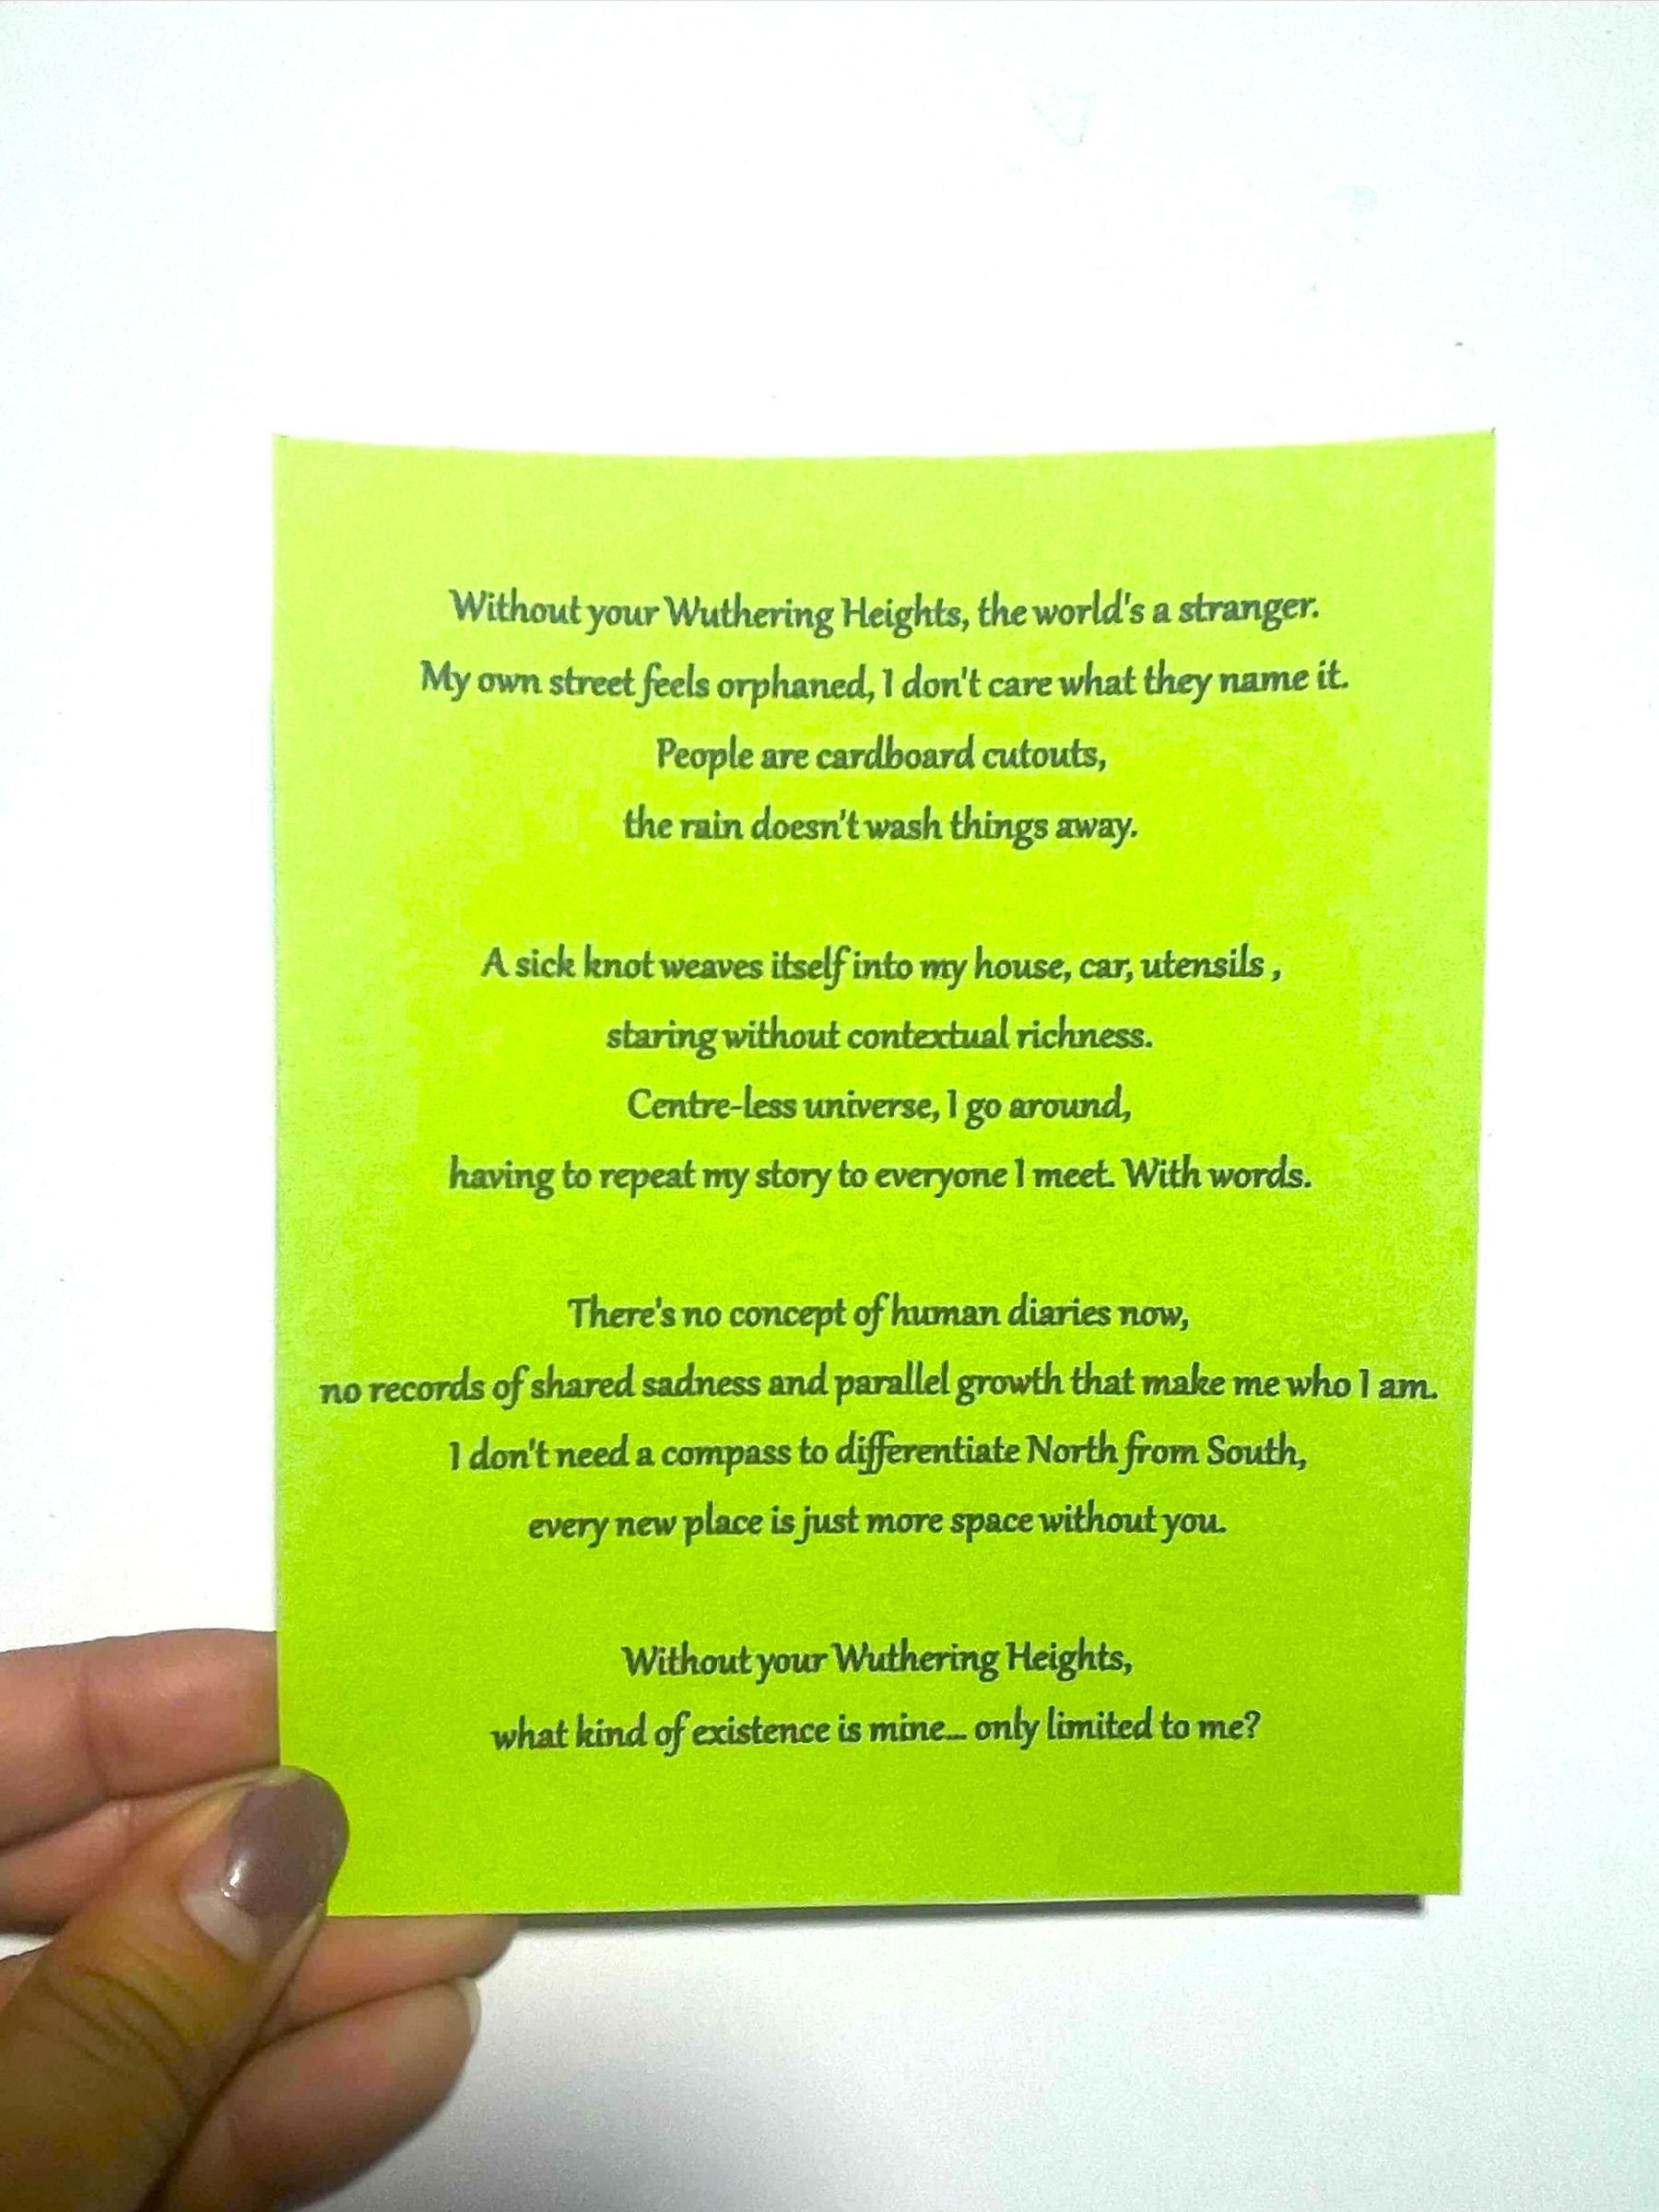 Without your Wuthering Heights, the world's a stranger.
My own street feels orphaned, I don't care what they name it.
People are cardboard cutouts,
the rain doesn't wash things away.
A sick knot weaves itself into my house, car, utensils ,
staring without contextual richness.
Centre-less universe, I go around,
having to repeat my story to everyone I meet. With words.
There's no concept of human diaries now,
no records of shared sadness and parallel growth that make me who I am.
I don't need a compass to differentiate North from South,
every new place is just more space without you.
Without your Wuthering Heights,
what kind of existence is mine... only limited to me?